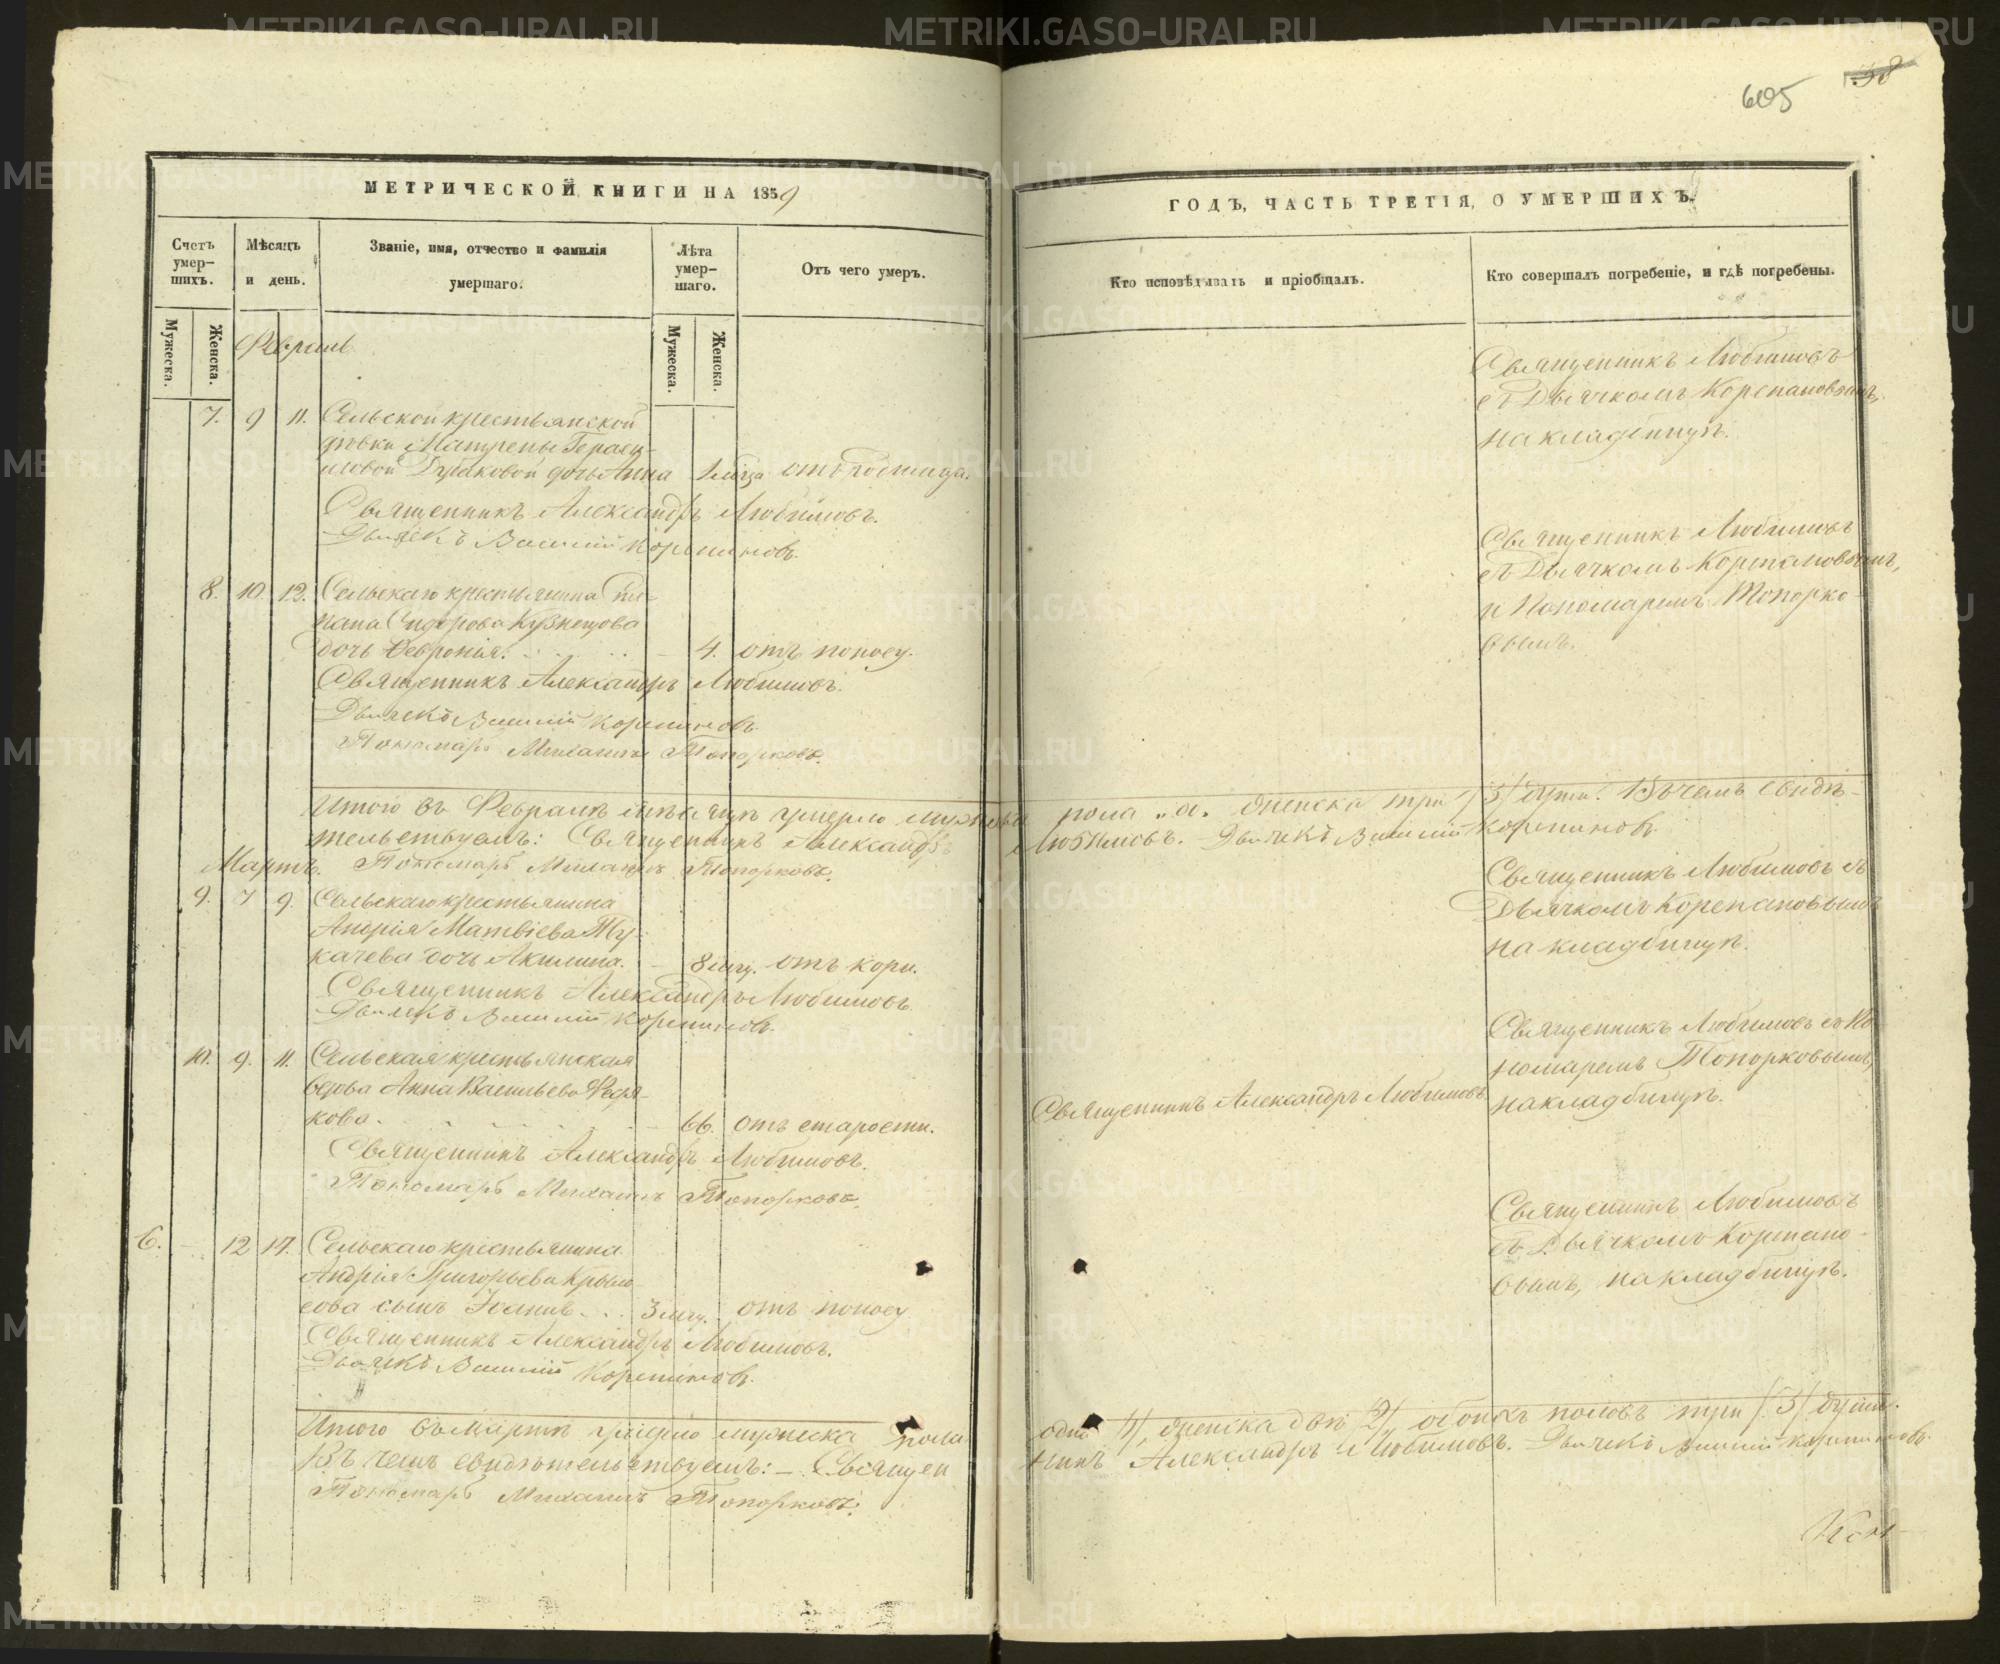 605
38
МЕТРИЧЕСКОЙ КНИГИ НА 1859
Счетъ умер-
шихъ.
Мѣсяцъ
и день.
Званіе, имя, отчество и фамилія
умершаго.
Лѣта
умер-
шаго.
Отъ чего умеръ.
Мужеска.
Женска.
Мужеска.
Женска.
Февраль
7. 9 11. Сельской крестьянской
дѣвки Матрены Гераси-
мовой дочь Анна 1 мѣца отъ родимца.
Священникъ Александръ Любимовъ.
Дьячекъ Василій Корепановъ.
8. 10. 12. Сельскаго крестьянина
Сидорова Кузнецова
дочь Февронія. 4. отъ поносу.
Священникъ Александръ Любимовъ.
Дьячекъ Василій Корепановъ.
Пономарь Михаилъ Топорковъ.
Итого въ Февралѣ мѣсяцѣ умерло мужеска
тельствуемъ: Священникъ Александръ
Мартъ. Пономарь Михаилъ Топорковъ.
9. 7 9. Сельскаго крестьянина
Андрія Матвіева Ту-
качева дочь Акилина. 8 мцъ. отъ кори.
Священникъ Александръ Любимовъ
Дьячекъ Василій Корепановъ.
10. 9. 11. Сельская крестьянская
вдова Анна Васильева Федя-
кова. 66. отъ старости.
Священникъ Александръ Любимовъ.
Пономарь Михаилъ Топорковъ.
6. - 12 14. Сельскаго крестьянина
Андрія Григорьева Крыло-
сова сынъ Іоаннъ. 3 мцъ. отъ поносу
Священникъ Александръ Любимовъ.
Дьячекъ Василій Корепановъ.
Итого въ Мартѣ умерло мужеска пола
Въ чемъ свидѣтельствуемъ: – Священ
Пономарь Михаилъ Топорковъ.
ГОДЪ, ЧАСТЬ ТРЕТІЯ, О УМЕРШИХЪ.
Кто исповѣдывалъ и пріобщалъ.
Кто совершалъ погребеніе, и гдѣ погребены.
Священникъ Любимовъ
съ Дьячкомъ Корепановымъ,
на кладбищѣ.
Священникъ Любимовъ
съ Дьячкомъ Корепановымъ,
и Пономаремъ Топорко-
вымъ.
пола „0„ женска три /3/ душъ. Въ чемъ свидѣ-
Любимовъ. Дьячекъ Василій Корепановъ
Священникъ Любимовъ съ
Дьячкомъ Корепановымъ
на кладбищѣ.
Священникъ Любимовъ съ По
номаремъ Топорковымъ,
Священникъ Александръ Любимовъ. на кладбищѣ.
Священникъ Любимовъ
съ Дьячкомъ Корепано-
вымъ, на кладбищѣ.
одна /1/, женска двѣ /2/, обоихъ половъ три /3/ души.
никъ Александръ Любимовъ. Дьячекъ Василій Корепановъ.
METRIKI.GASO-URAL.RU